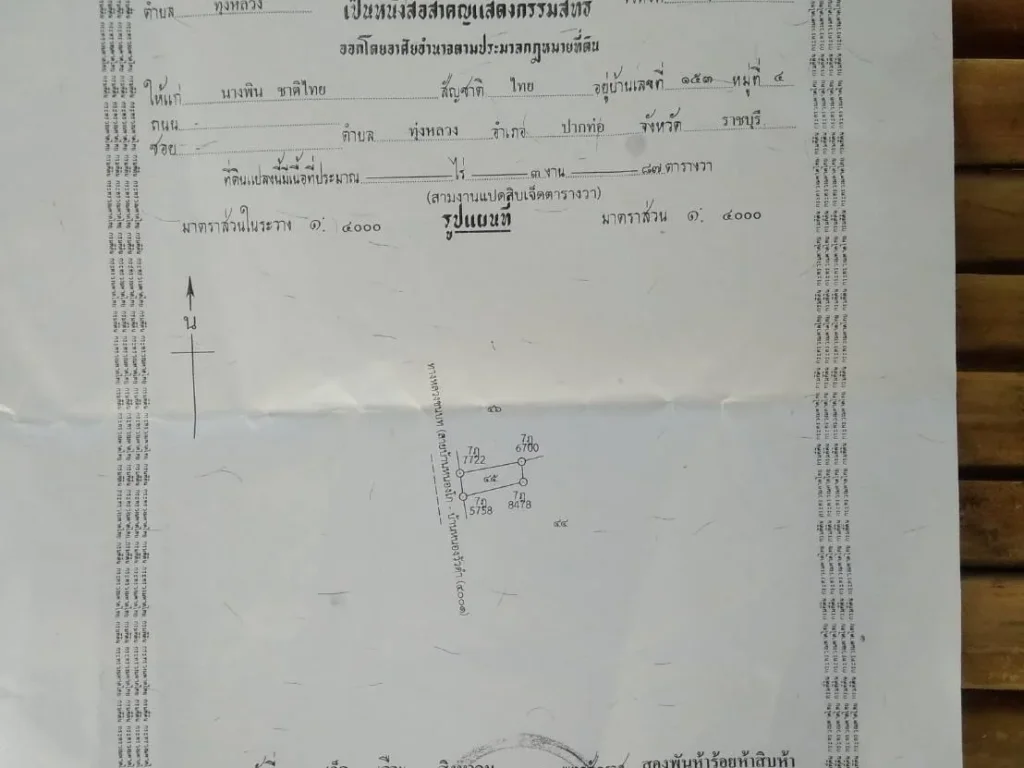 ตำบล ทุ่งหลวง
เป็นหนังสือสำคัญแสดงกรรมสิทธิ์
ออกโดยอาศัยอำนาจตามประมวลกฎหมายที่ดิน
ให้แก่ นางพิน ชาติไทย สัญชาติ ไทย อยู่บ้านเลขที่ ๑๕๓ หมู่ที่ ๔
ถนน -
ซอย - ตำบล ทุ่งหลวง อำเภอ ปากท่อ จังหวัด ราชบุรี
ที่ดินแปลงนี้มีเนื้อที่ประมาณ ไร่ ๓ งาน ๘๗ ตารางวา
(สามงานแปดสิบเจ็ดตารางวา)
มาตราส่วนในระวาง ๑: ๔๐๐๐ รูปแผนที่ มาตราส่วน ๑: ๔๐๐๐
น
ทางหลวงชนบท (สายบ้านหนองบัว - บ้านหนองวัวดำ (๔๐๐๑)
๔๖
7ฦ
7722
7ฦ
6700
๔๕
7ฦ
5758
7ฦ
8478
๔๔
สิงหาคม
สองพันห้าร้อยห้าสิบห้า